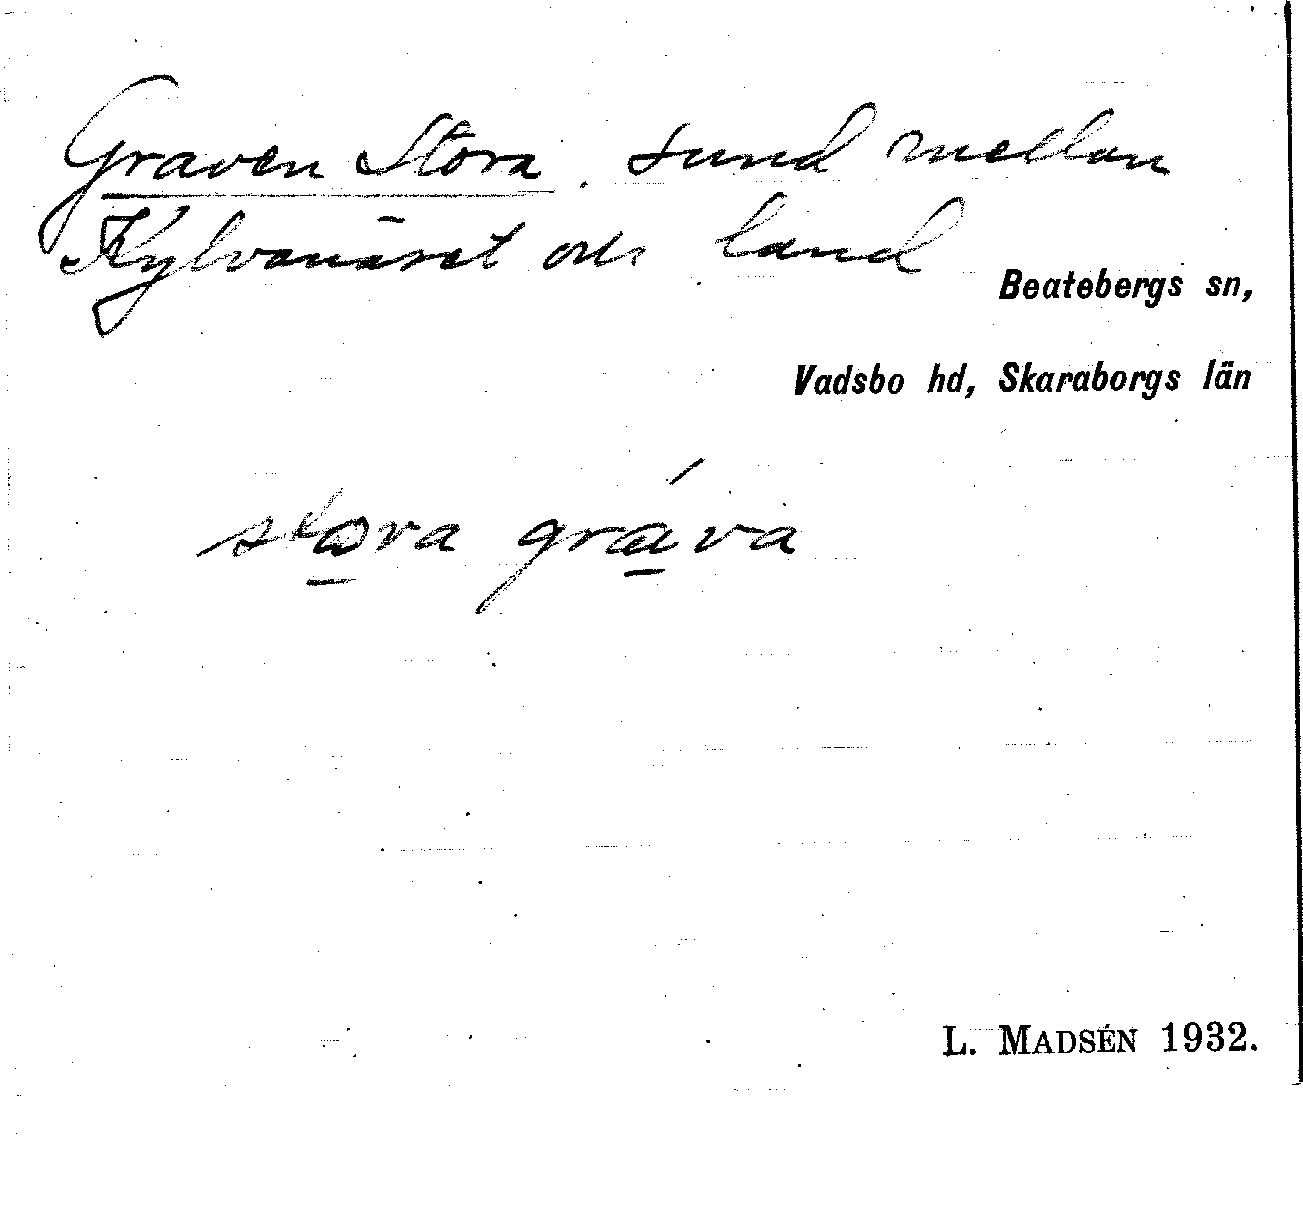 Graven Stora. sund mellan
Kylvanäset och land
Beatebergs sn,
Vadsbo hd, Skaraborgs län
sto̲ra grá̲va
L. MADSÉN 1932.